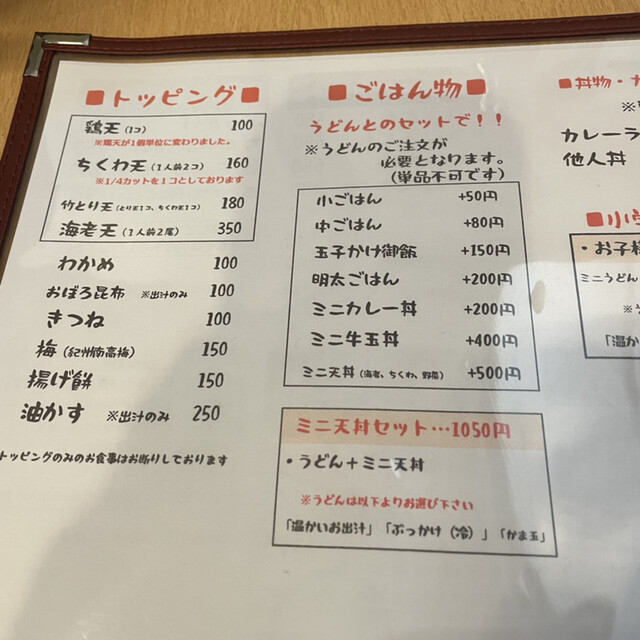 ■トッピング■
鶏天(1コ) 100
※鶏天が1個単位に変わりました。
ちくわ天(1人前2コ) 160
※1/4カットを1コとしております
竹とり天(とり天1コ、ちくわ天1コ) 180
海老天(1人前2尾) 350
わかめ 100
おぼろ昆布 ※出汁のみ 100
きつね 100
梅(紀州南高梅) 150
揚げ餅 150
油かす ※出汁のみ 250
トッピングのみのお食事はお断りしております
■ごはん物■
うどんとのセットで!!
※うどんのご注文が
必要となります。
(単品不可です)
小ごはん +50円
中ごはん +80円
玉子かけ御飯 +150円
明太ごはん +200円
ミニカレー丼 +200円
ミニ牛玉丼 +400円
ミニ天丼(海老、ちくわ、野菜) +500円
ミニ天丼セット…1050円
・うどん+ミニ天丼
※うどんは以下よりお選び下さい
「温かいお出汁」「ぶっかけ(冷)」「かま玉」
■丼物・カ
カレーラ
他人丼
■小学
・お子様
ミニうどん
「温か